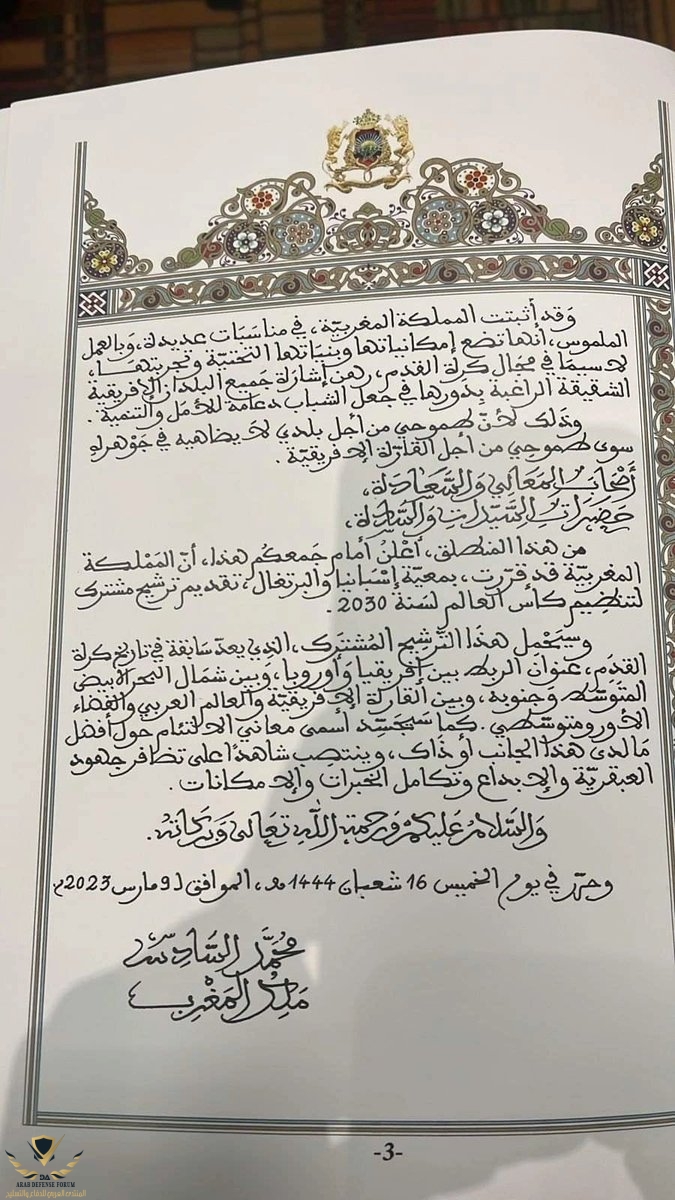 وَقد أثبتت المملكة المغربيّة، في مناسَبَات عديدة، وَبالعمل
الملموس، أنها تضع إمكانياتها وبنيَاتها التحتيّة وتجربتها،
لا سيمَا في مجَال كرة القدم، رهن إشارة جَميع البلدان الإفريقية
الشقيقة الراغبة بدَورها في جعل الشباب دعامة للأمل والتنمية.
وذلك لأنّ طموحي من أجل بلدي لا يضاهيه في جَوهره
سوى طموحي من أجل القارّة الإفريقيّة.
أصْحَابَ المعَالي وَالسَّعَادة،
حَضرات السَّيّدات وَالسَّادة،
من هذا المنطلق، أعْلنُ أمام جَمعكم هذا، أنّ المَمْلكة
المغربيّة قد قرّرت، بمعيّة إسْبانيا والبرتغال، تقديم ترشيح مشترك
لتنظيم كأس العالم لسَنة 2030.
وسيَحْمل هذا الترشيح المُشترَك، الذي يعدّ سَابقة في تاريخ كرة
القدَم، عنوان الربط بين إفريقيا وَأوروبا، وَبين شمَال البحر الأبيض
المتوَسّط وَجنوبه، وبين القارة الإفريقيّة والعالم العربي والفضاء
الأورومتوسّطي. كما سيُجَسّد أسمى معاني الالتئام حول أفضل
مَا لدى هذا الجانب أو ذَاك، وينتصِب شاهدًا على تظافر جهود
العبقريّة والإبداع وتكامل الخبرات والإمكانات.
وَالسَّلامُ عَليكم وَرحمة اللّٰه تعَالى وَبَركاتهُ.
وحرّر في يوم الخميس 16 شعبان 1444 هـ، الموافق لـ 9 مارس 2023م
مُحَمَّد السَّادِسُ
مَلِكُ المَغْرِب
-3-
DA
ARAB DEFENSE FORUM
المنتدى العربي للدفاع والتسليح